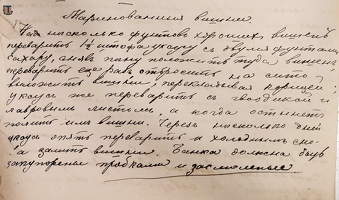 Маринованныя вишни.
На несколько фунтовъ хорошихъ вишенъ
переварить 1½ штофа уксусу съ двумя фунтами
сахару, снявъ пену положить туда вишни
переварить еще разъ, отбросить на сито,
выложить вишни, перекладывая корицей,
уксусъ же переварить съ гвоздикой и
лавровымъ листомъ, и когда остынетъ
полить имъ вишни. Черезъ несколько дней
уксусъ опять переварить и холоднымъ сно-
ва залить вишни. Банка должна быть
закупорена пробками и засмолена